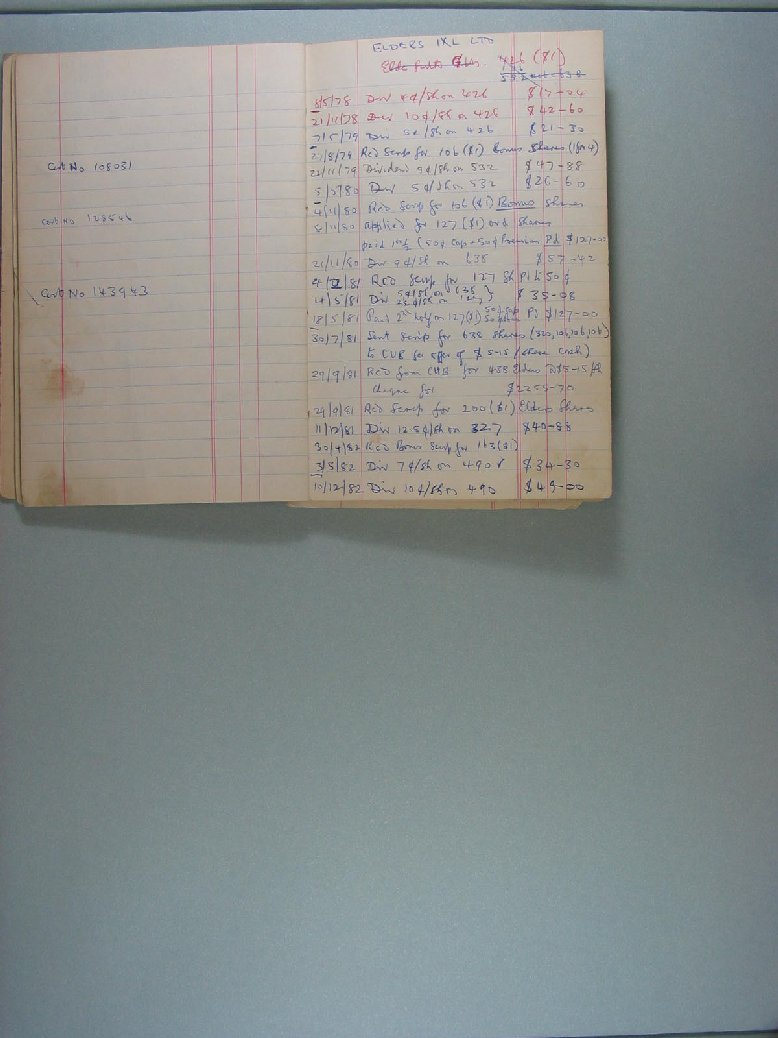 Cert No 108051
Cert No 128546
Cert No 143943
ELDERS IXL LTD
426 ($1)
8/5/78 Div 4¢/Sh on 426 $17-04
21/11/78 Div 10¢/Sh on 426 $42-60
7/5/79 Div 5¢/Sh on 426 $21-30
27/8/79 Rec'd Scrip for 106 ($1) Bonus Shares (1 for 4)
22/11/79 Dividend 9¢/Sh on 532 $47-88
5/5/80 Div 5¢/Sh on 532 $26-60
4/11/80 Rec'd Scrip for 106 ($1) Bonus Shares
8/11/80 applied for 127 ($1) ord shares
paid (50¢ Cap + 50¢ Premium Pd $127-00
21/11/80 Div 9¢/Sh on 638 $57-42
Rec'd Scrip for 127 Sh Pd to 50¢
14/5/81 Div 5¢/Sh on 638 $35-08
2½¢/Sh on 127
18/5/81 Paid 2nd half on 127 ($1) Pd $127-00
30/7/81 Sent Scrip for 638 Shares (320, 106, 106, 106)
to CUB for offer of $5-15/share cash)
29/9/81 Rec'd from CUB for 438 Elders @ $5-15/Sh
cheque for $2255-70
29/9/81 Rec'd Scrip for 200 ($1) Elders Shares
11/12/81 Div 12.5¢/Sh on 327 $40-88
30/4/82 Rec'd Bonus Scrip for 163 ($1)
3/5/82 Div 7¢/Sh on 490 $34-30
10/12/82 Div 10¢/Sh on 490 $49-00